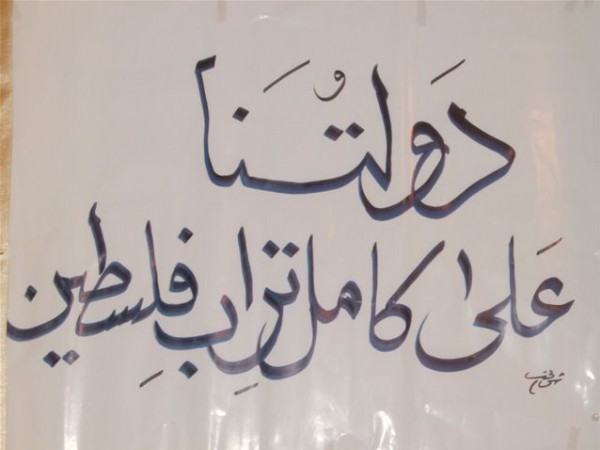 دَولتُنَا
عَلى كامل تراِبِ فِلسطين